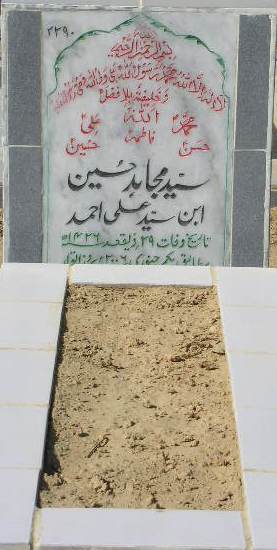 ۲۲۹۰
بسم اللہ الرحمن الرحیم
لا الہ الا اللہ محمد رسول اللہ علی ولی اللہ وصی رسول اللہ
و خلیفتہ بلا فصل
محمدؐ اللہ علیؑ
حسنؑ فاطمہؑ حسینؑ
سید مجاہد حسین
ابن سید علی احمد
تاریخ وفات ۲۹ ذیقعد ۱۴۲۶ھ
مطابق یکم جنوری ۲۰۰۶ء بروز اتوار